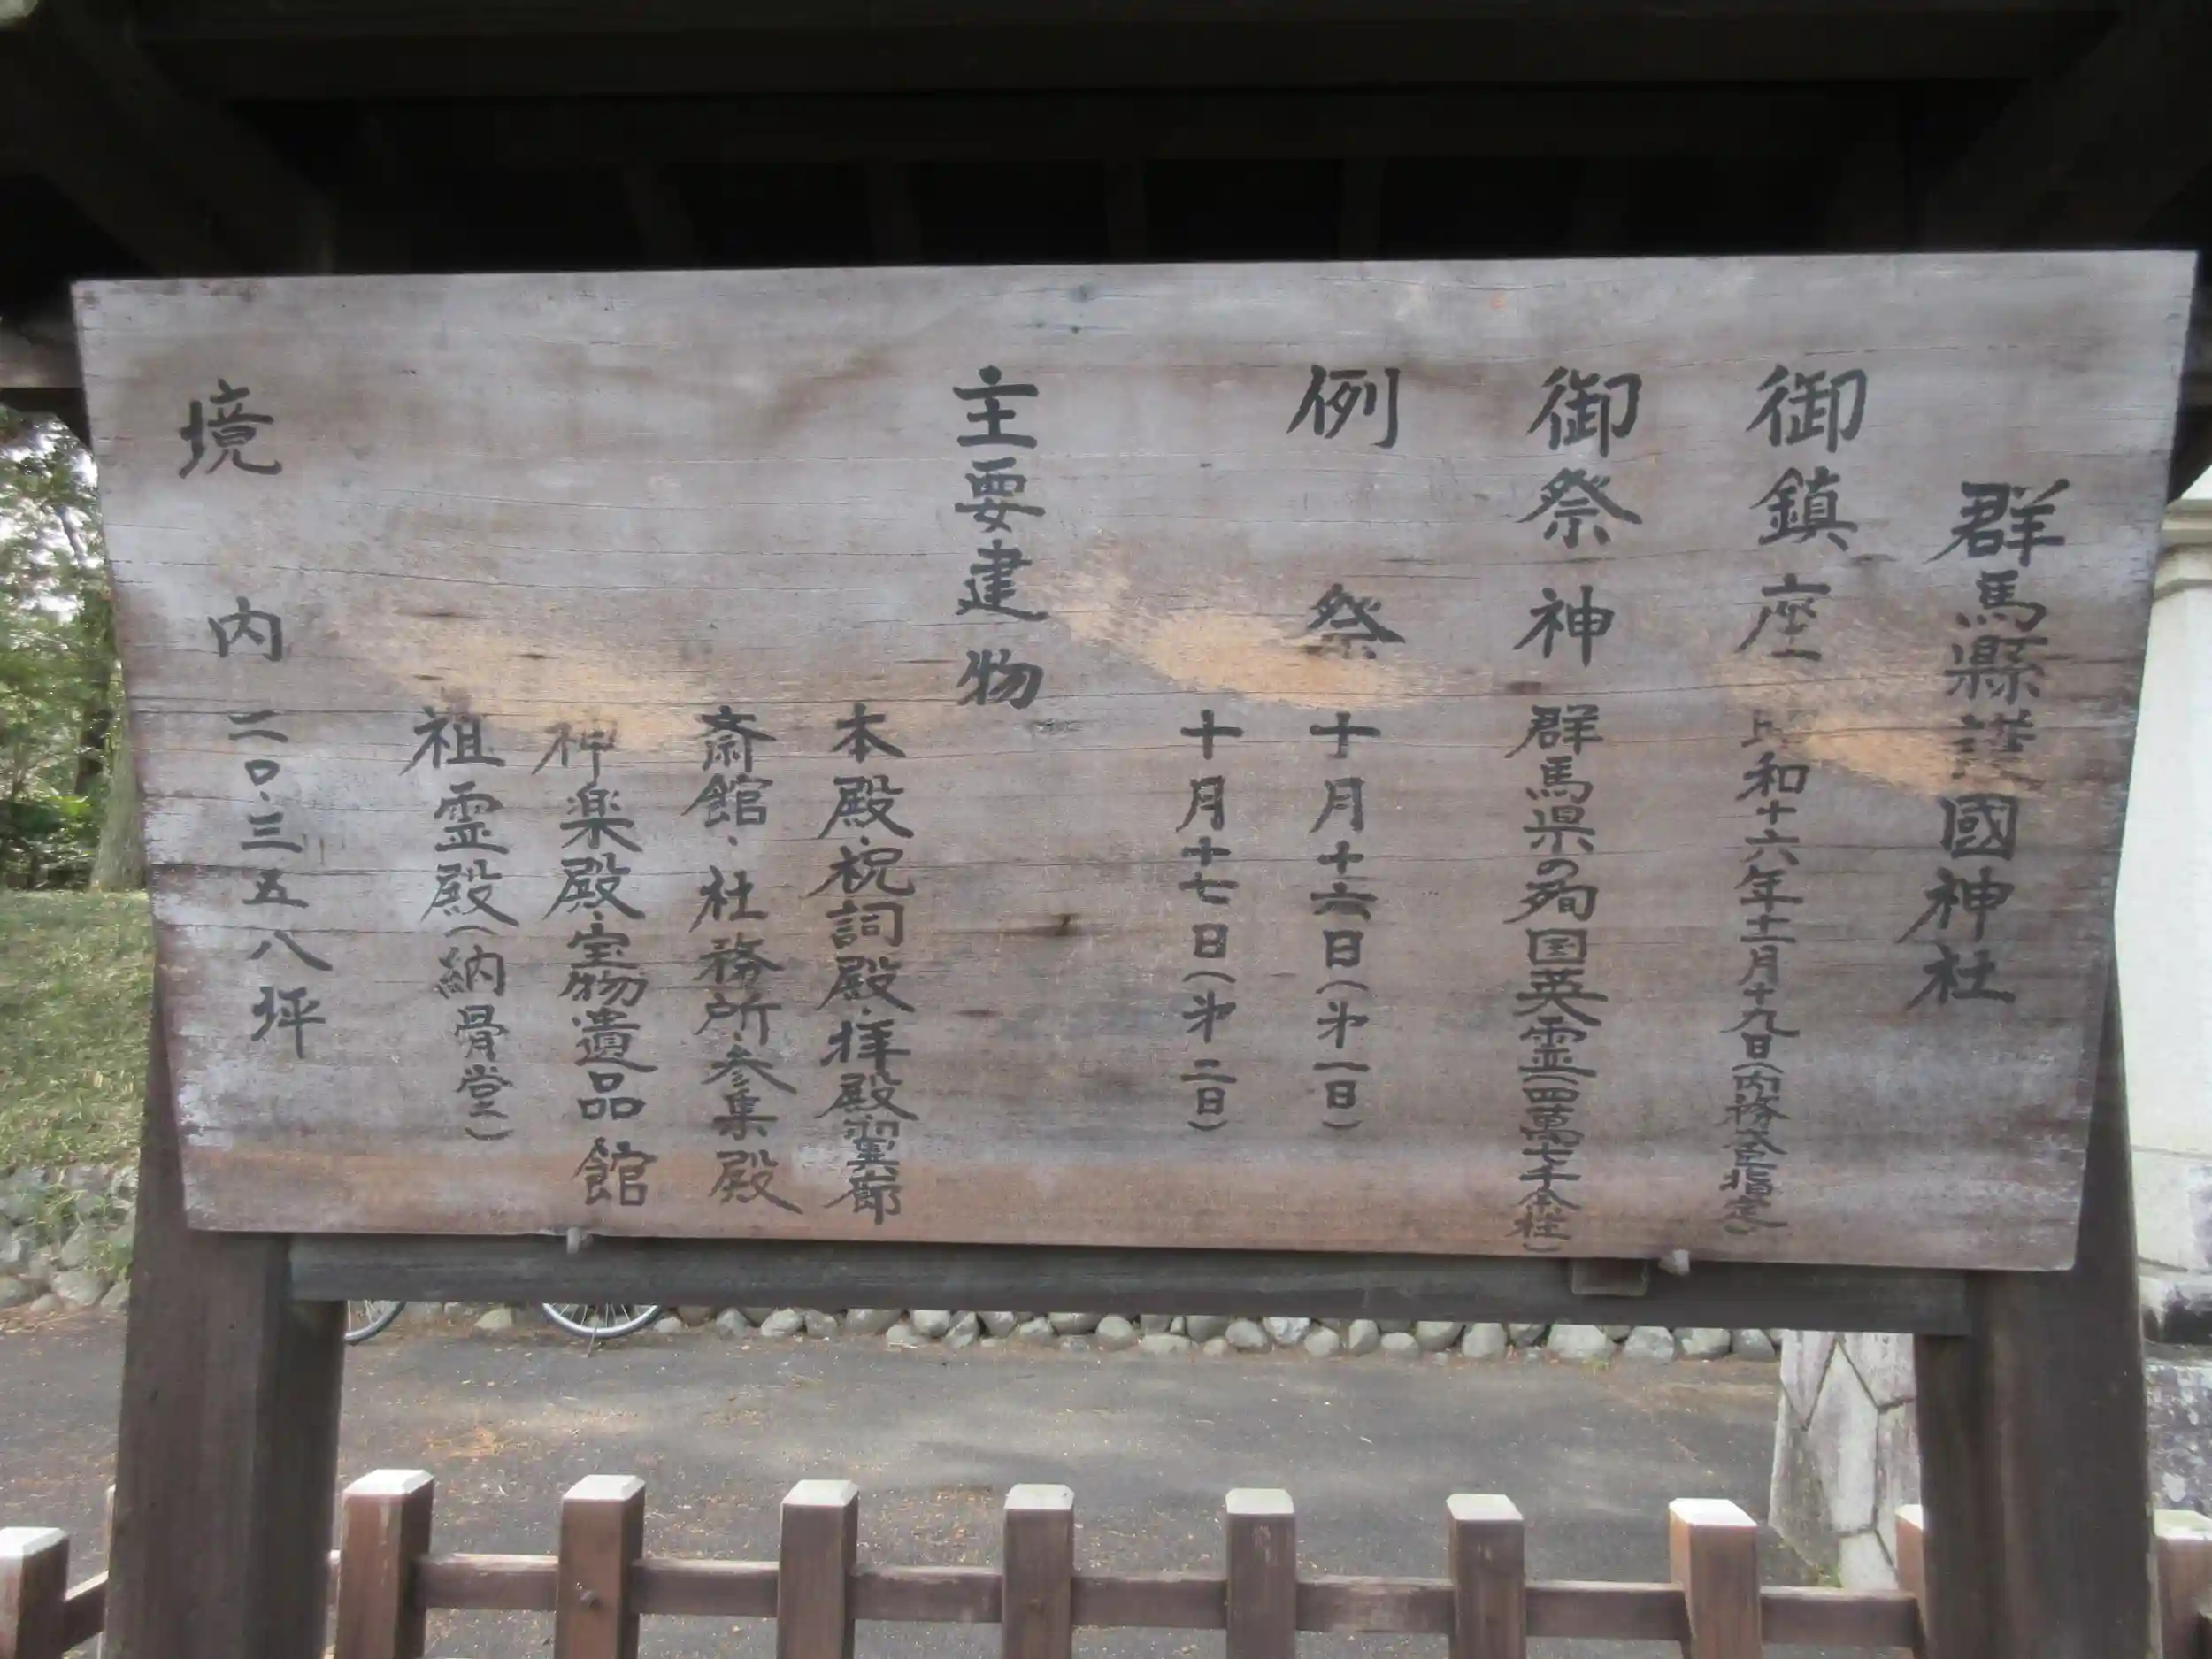 群馬縣護國神社
御鎮座 昭和十六年十一月十九日(内務大臣指定)
御祭神 群馬県の殉国英霊(四萬七千余柱)
例祭 十月十六日(㐧一日)
十月十七日(㐧二日)
主要建物
本殿.祝詞殿.拝殿.翼廊
斎館.社務所.参集殿
神楽殿.宝物遺品館
祖霊殿(納骨堂)
境内 二〇.三五八坪